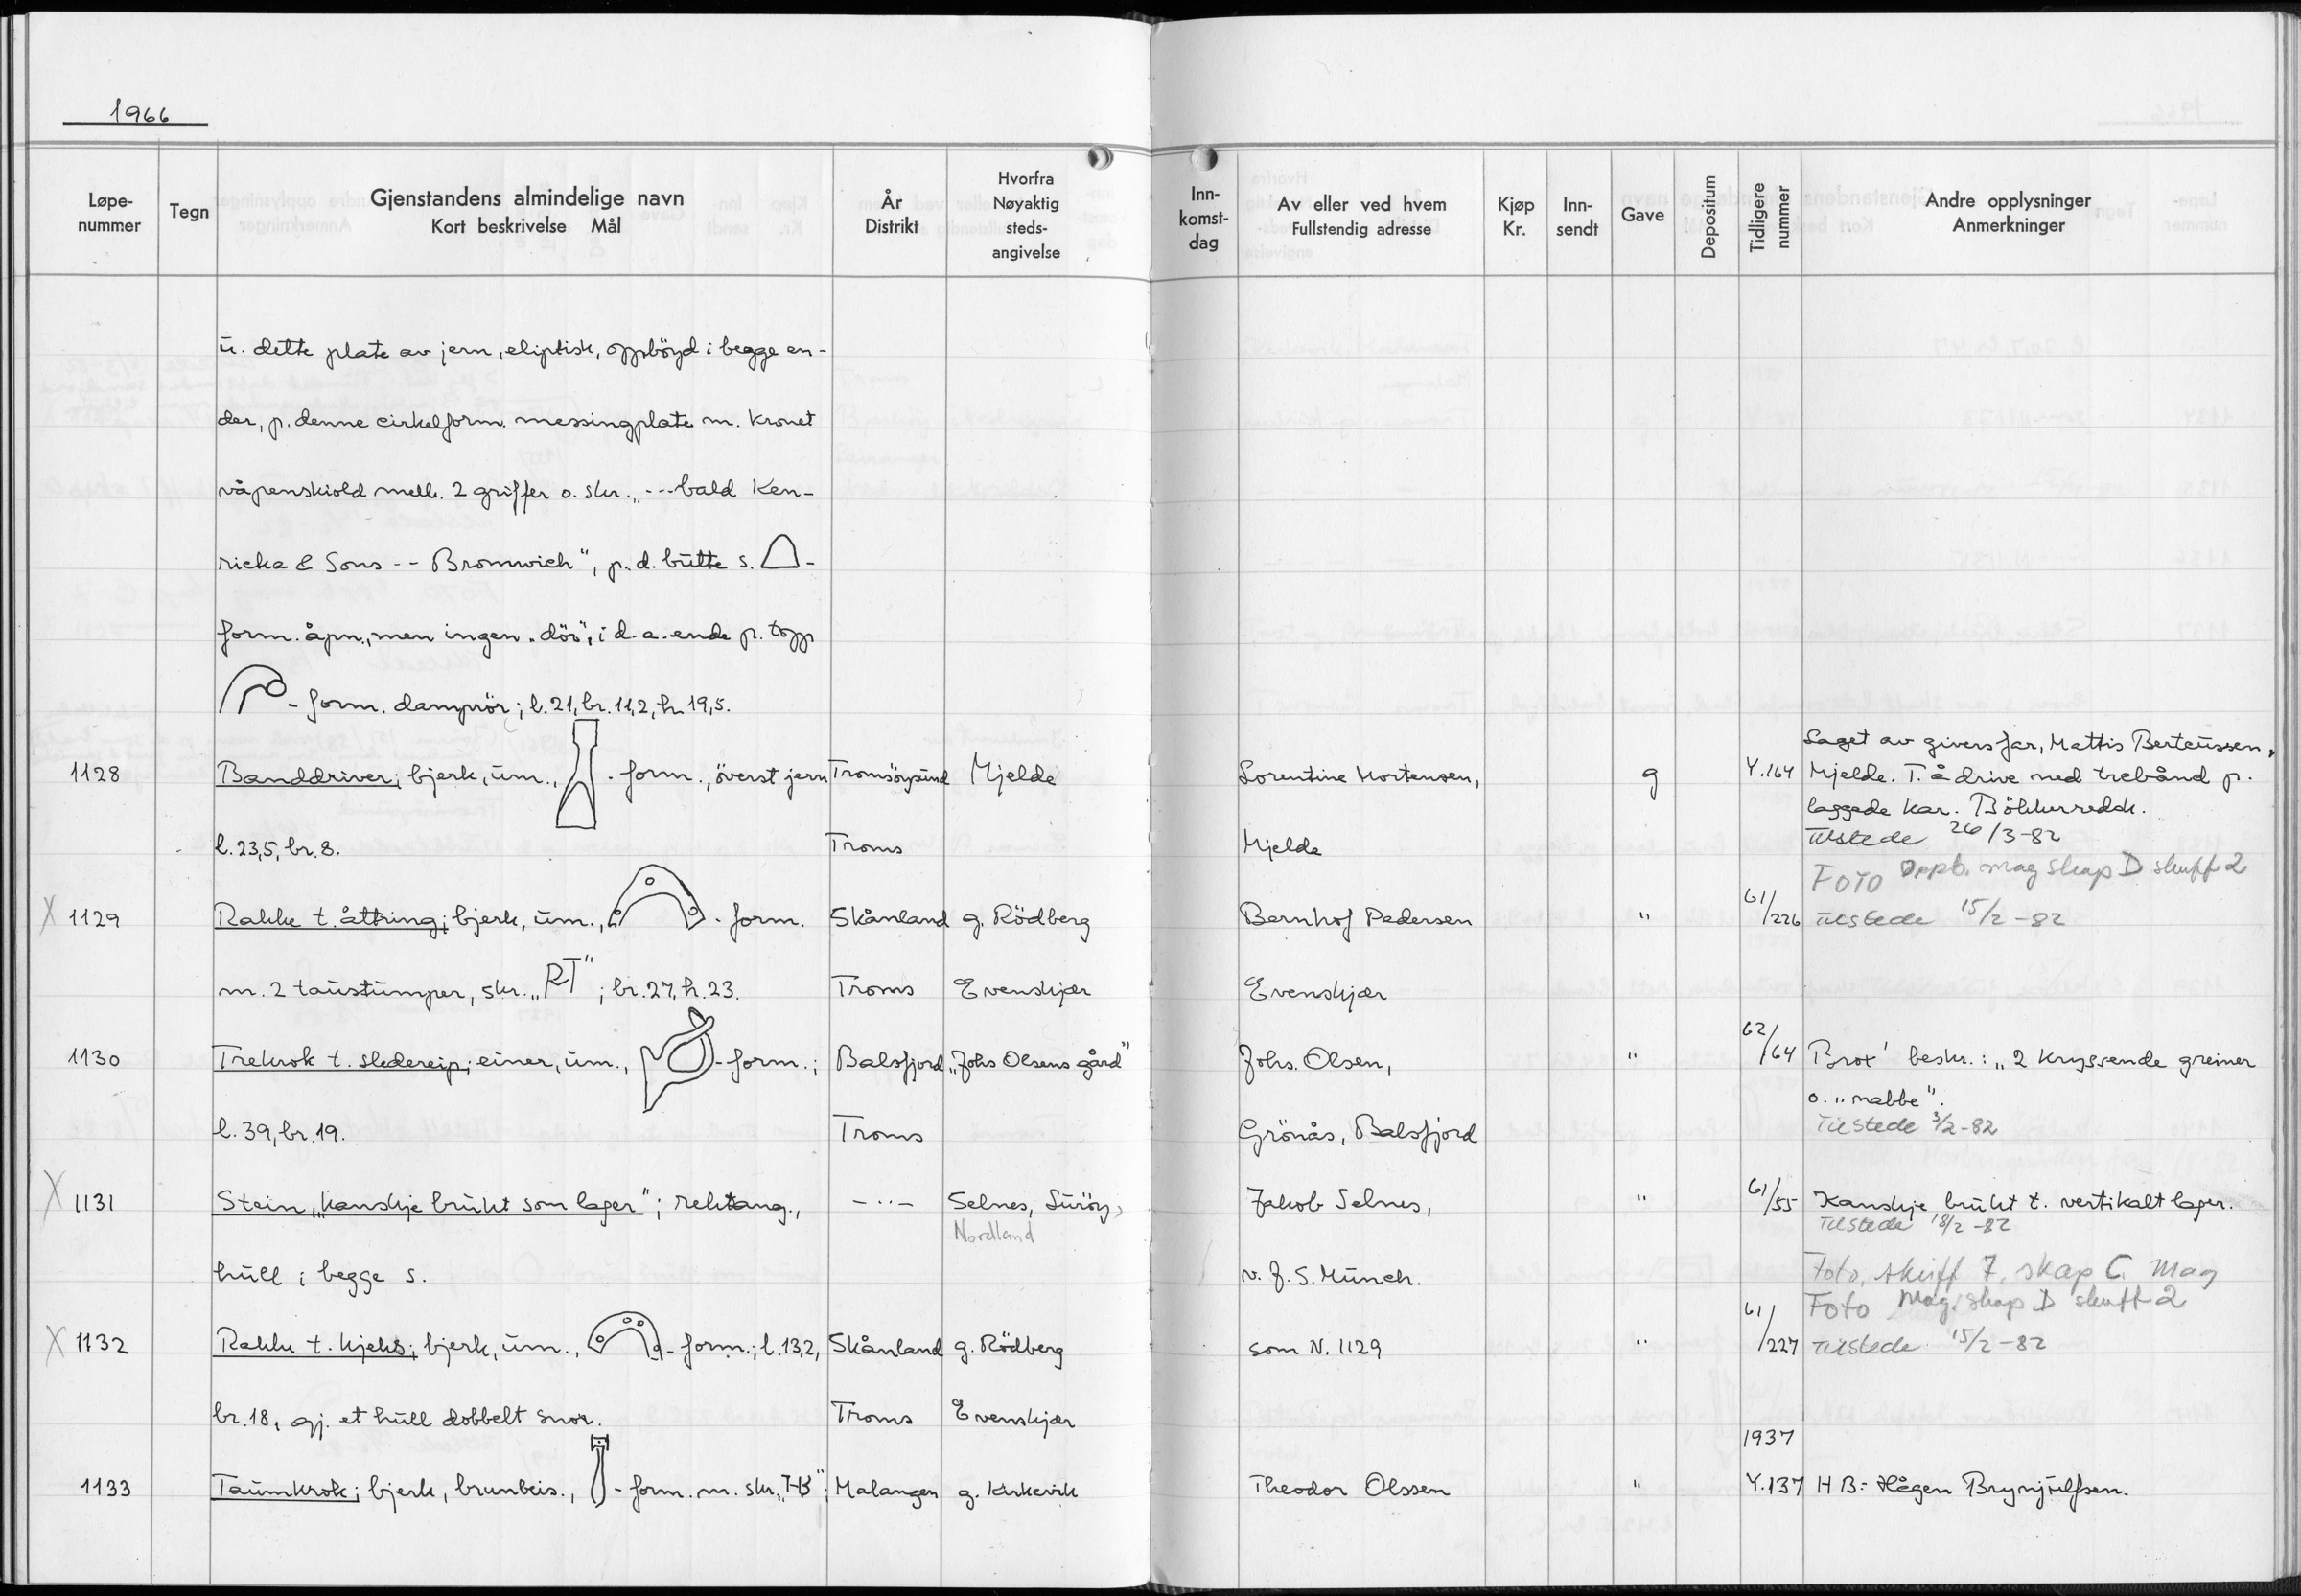 1966
Løpe-nummer Tegn Gjenstandens almindelige navn Kort beskrivelse Mål År Distrikt Hvorfra Nøyaktig steds-angivelse Inn-komst-dag Av eller ved hvem Fullstendig adresse Kjøp Kr. Inn-sendt Gave Depositum Tidligere nummer Andre opplysninger Anmerkninger
u. dette plate av jern, eliptisk, oppböyd i begge en-
der, p. denne cirkelform. messingplate m. kronet
våpenskiold mell. 2 griffer o. skr. „---bald Ken-
ricka & Sons -- Bromwich", p. d. butte s. -
form. åpn., men ingen „dör", i d. a. ende p. topp
- form. damprör; l. 21, br. 11,2, h. 19,5.
Laget av givers far, Mattis Berteussen,
1128 Banddriver; bjerk, um., - form., överst jern Tromsöysund Mjelde Lorentine Mortensen, g Y.164 Mjelde. T. å drive ned trebånd p.
laggede kar. Bökkerredsk.
l. 23,5, br. 8. Troms Mjelde Tilstede 26/3-82
Foto Oppb. mag skap D skuff 2
X 1129 Rakke t. åttring; bjerk, um., - form. Skånland g. Rödberg Bernhof Pedersen " 61/226 Tilstede 15/2-82
m. 2 taustumper, skr. „RT"; br. 27, h. 23. Troms Evenskjær Evenskjær
1130 Trekrok t. sledereip; einer, um., - form.; Balsfjord „Johs Olsens gård" Johs. Olsen, " 62/64 Brox' beskr.: „2 kryssende greiner
o. „nabbe".
l. 39, br. 19. Troms Grönås, Balsfjord Tilstede 3/2-82
X 1131 Stein, „kanskje brukt som lager"; rektang., -"- Selnes, Luröy, Jakob Selnes, " 61/55 Kanskje brukt t. vertikalt lager.
Nordland Tilstede 18/2-82
hull i begge s. v. J. S. Munch. Foto, skuff 7, skap C. Mag
Foto Mag. skap D skuff 2
X 1132 Rakke t. kjeks; bjerk, um., - form.; l. 13,2, Skånland g. Rödberg som N. 1129 " 61/227 Tilstede 15/2-82
br. 18, gj. et hull dobbelt snor. Troms Evenskjær
1937
1133 Taumkrok; bjerk, brunbeis., - form. m. skr. „HB"; Malangen g. Kirkevik Theodor Olssen " Y.137 HB = Hågen Brynjulfsen.